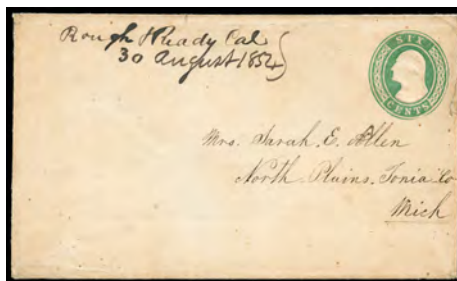 Rough & Ready Cal
30 August 1854
SIX
CENTS
Mrs. Sarah. E. Allen
North. Plains. Ionia Co
Mich